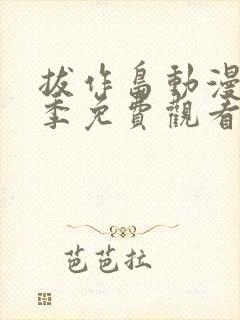 拔作島動漫
季免費觀看
芭芭拉